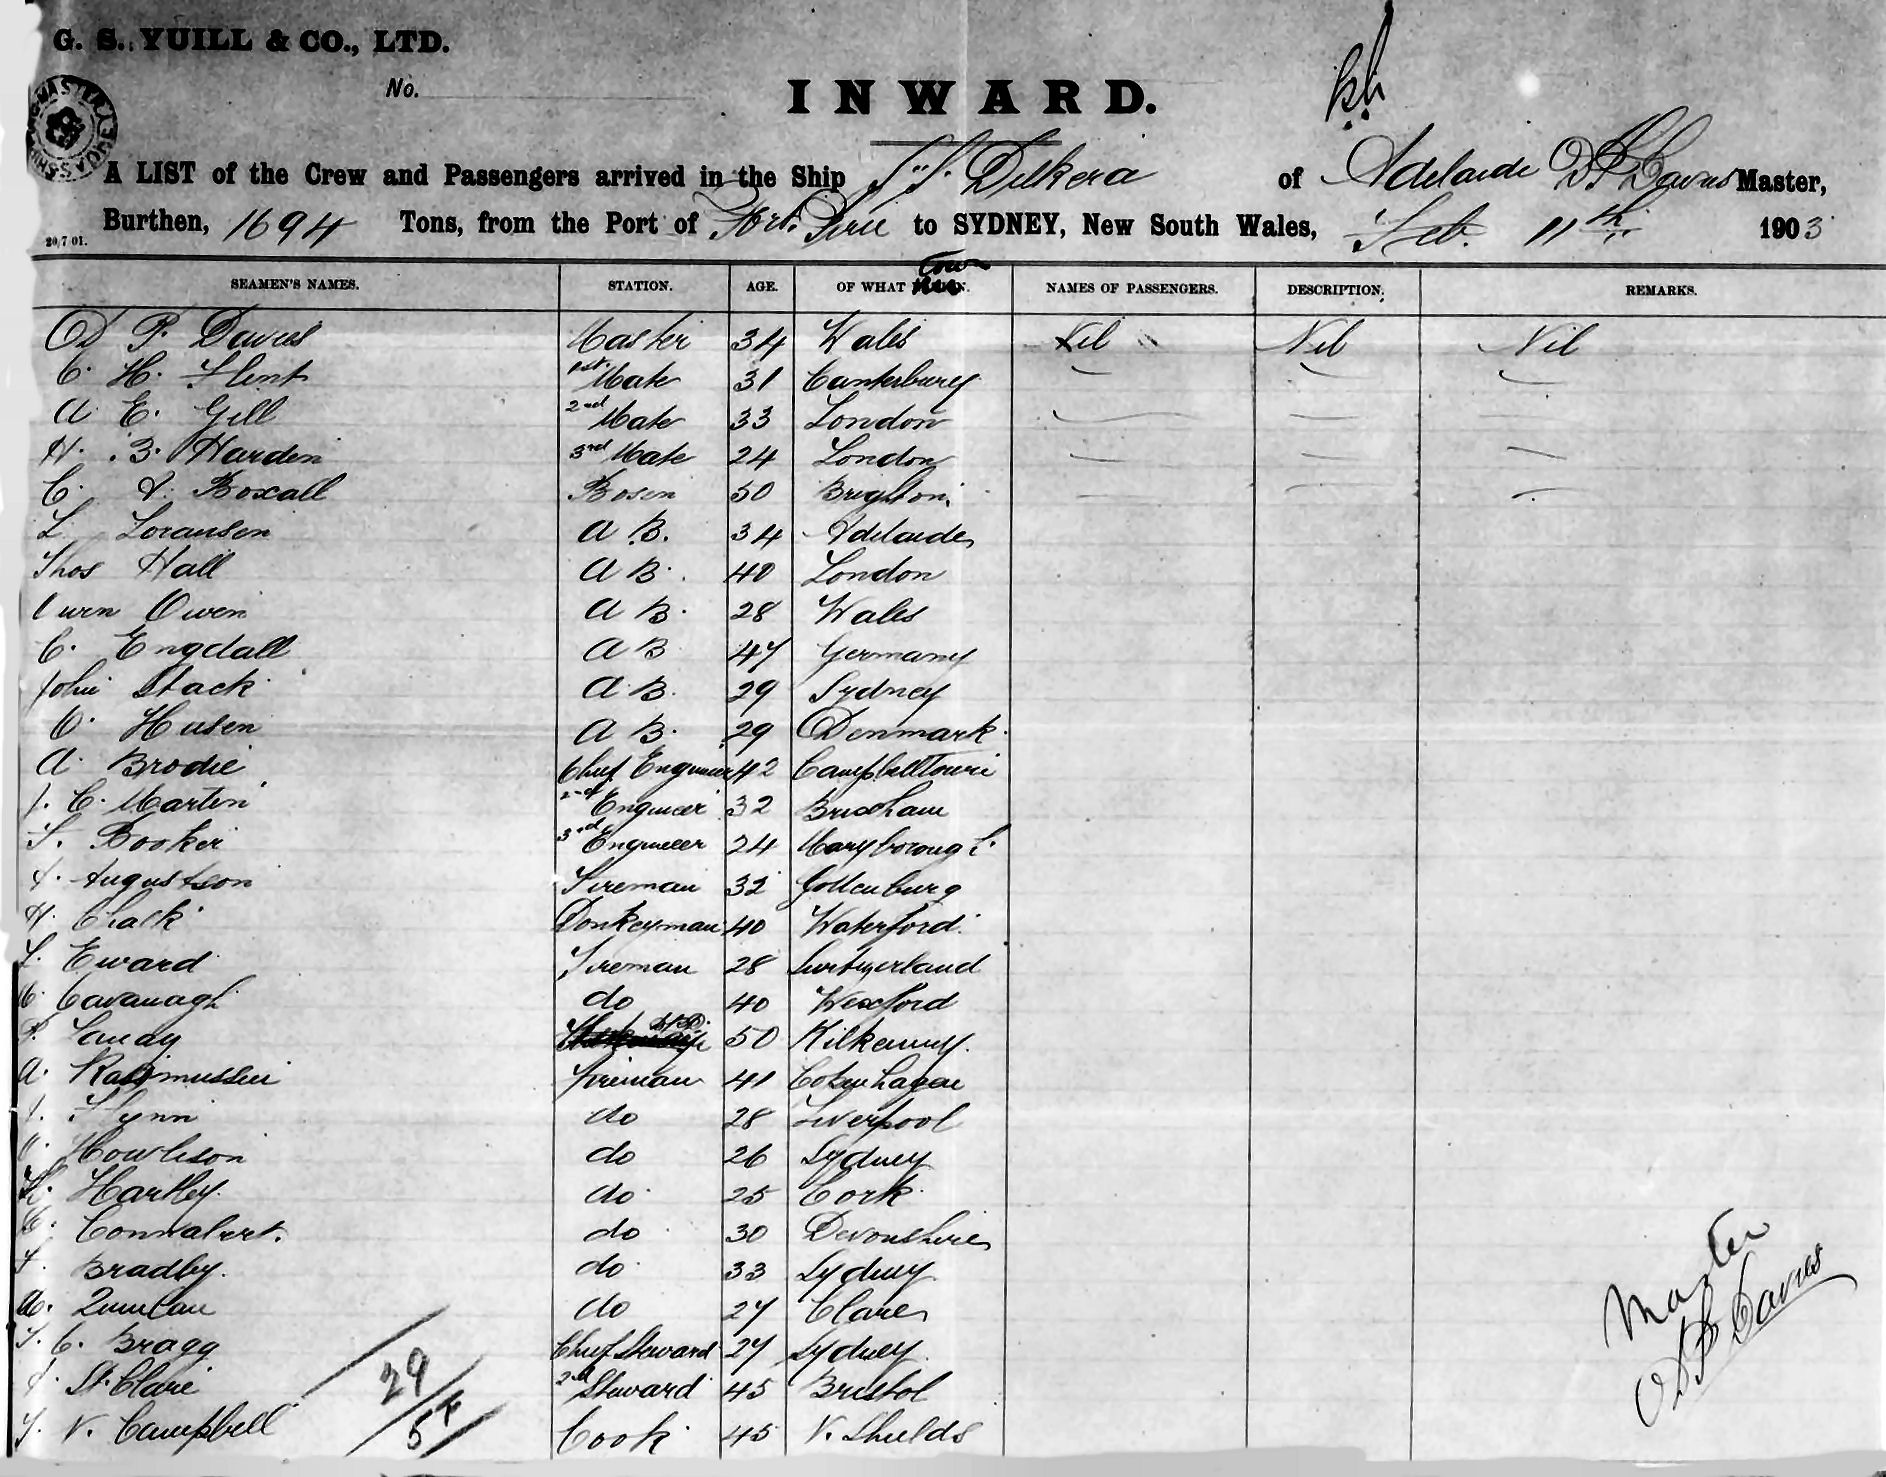 G. S. YUILL & CO., LTD.
No.
INWARD.
A LIST of the Crew and Passengers arrived in the Ship S.S. Dilkera of Adelaide D P Davies Master,
Burthen, 1694 Tons, from the Port of Port Pirie to SYDNEY, New South Wales, Feb. 11th 1903
20,7 01.
SEAMEN'S NAMES. STATION. AGE. OF WHAT Town NAMES OF PASSENGERS. DESCRIPTION. REMARKS.
D P. Davies Master 34 Wales Nil Nil Nil
C. H. Flint 1st Mate 31 Canterbury
A E. Gill 2nd Mate 33 London
H. B. Harden 3rd Mate 24 London
C. A. Boxall Bosen 50 Brighton
L. Loransen A B. 34 Adelaide
Thos Hall A B. 40 London
Owen Owen A B. 28 Wales
C. Engdall A B 47 Germany
John Stack A B. 29 Sydney
C. Hasen A B. 29 Denmark
A. Brodie Chief Engineer 42 Campbelltown
J. C. Martin 2nd Engineer 32 Brixham
F. Booker 3rd Engineer 24 Maryborough
A. Augustson Fireman 32 Gottenburg
H. Chalk Donkeyman 40 Waterford
L. Eward Fireman 28 Switzerland
C. Cavanagh do 40 Wexford
P. 50 Kilkenny
A. Rasmussen Fireman 41 Copenhagen
J. Flynn do 28 Liverpool
Howieson do 26 Sydney
H. Hartley do 25 Cork
C. do 30 Devonshire
F. Bradley do 33 Sydney
Quinlan do 27 Clare
F. C. Bragg Chief Steward 27 Sydney
St. Clair 2nd Steward 45 Bristol
J. N. Campbell Cook 45 N. Shields
29
5
Master
D P Davies